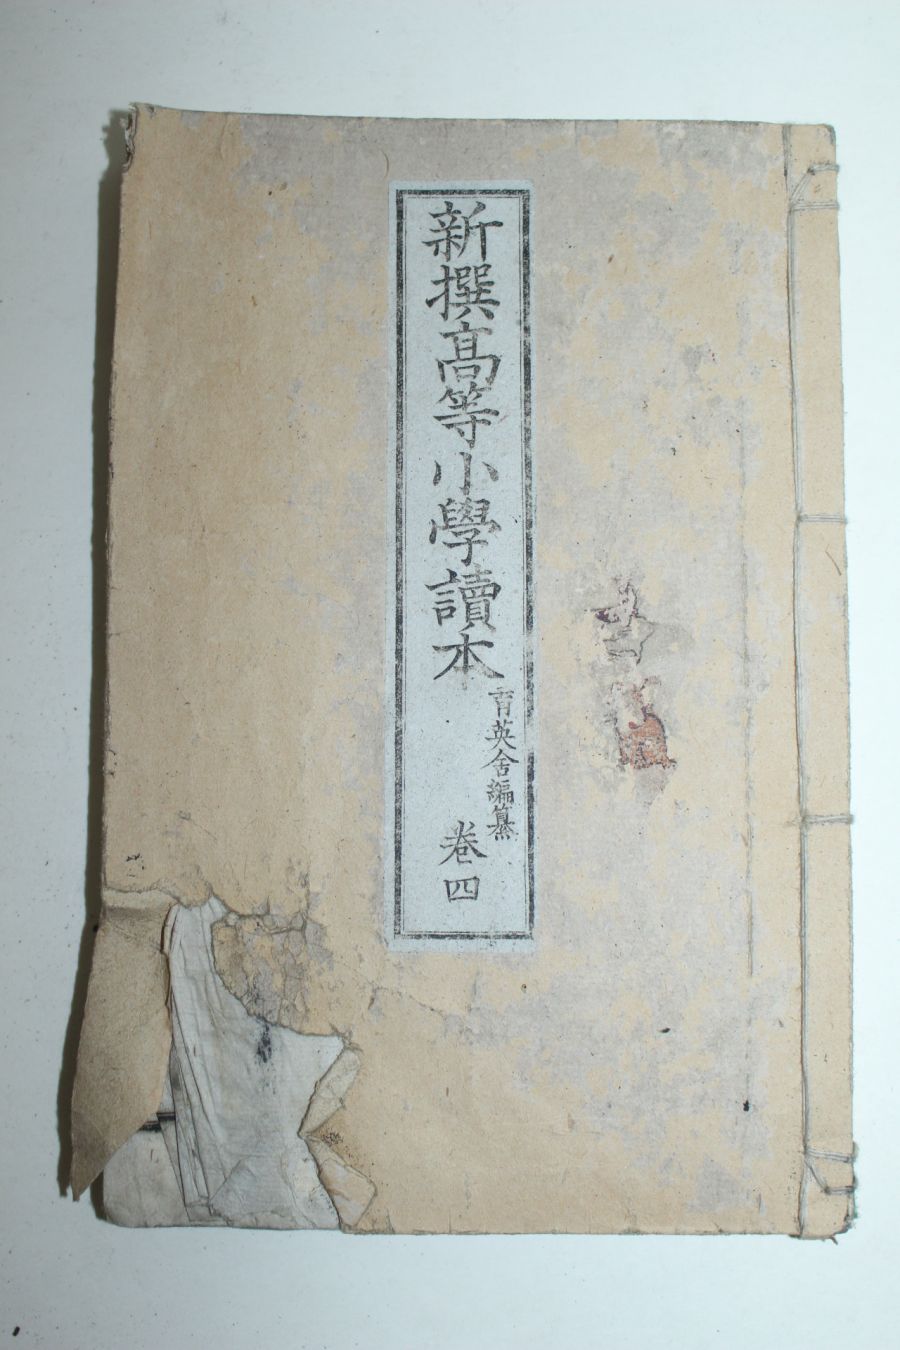 新撰高等小學讀本
育英舍編纂
卷四